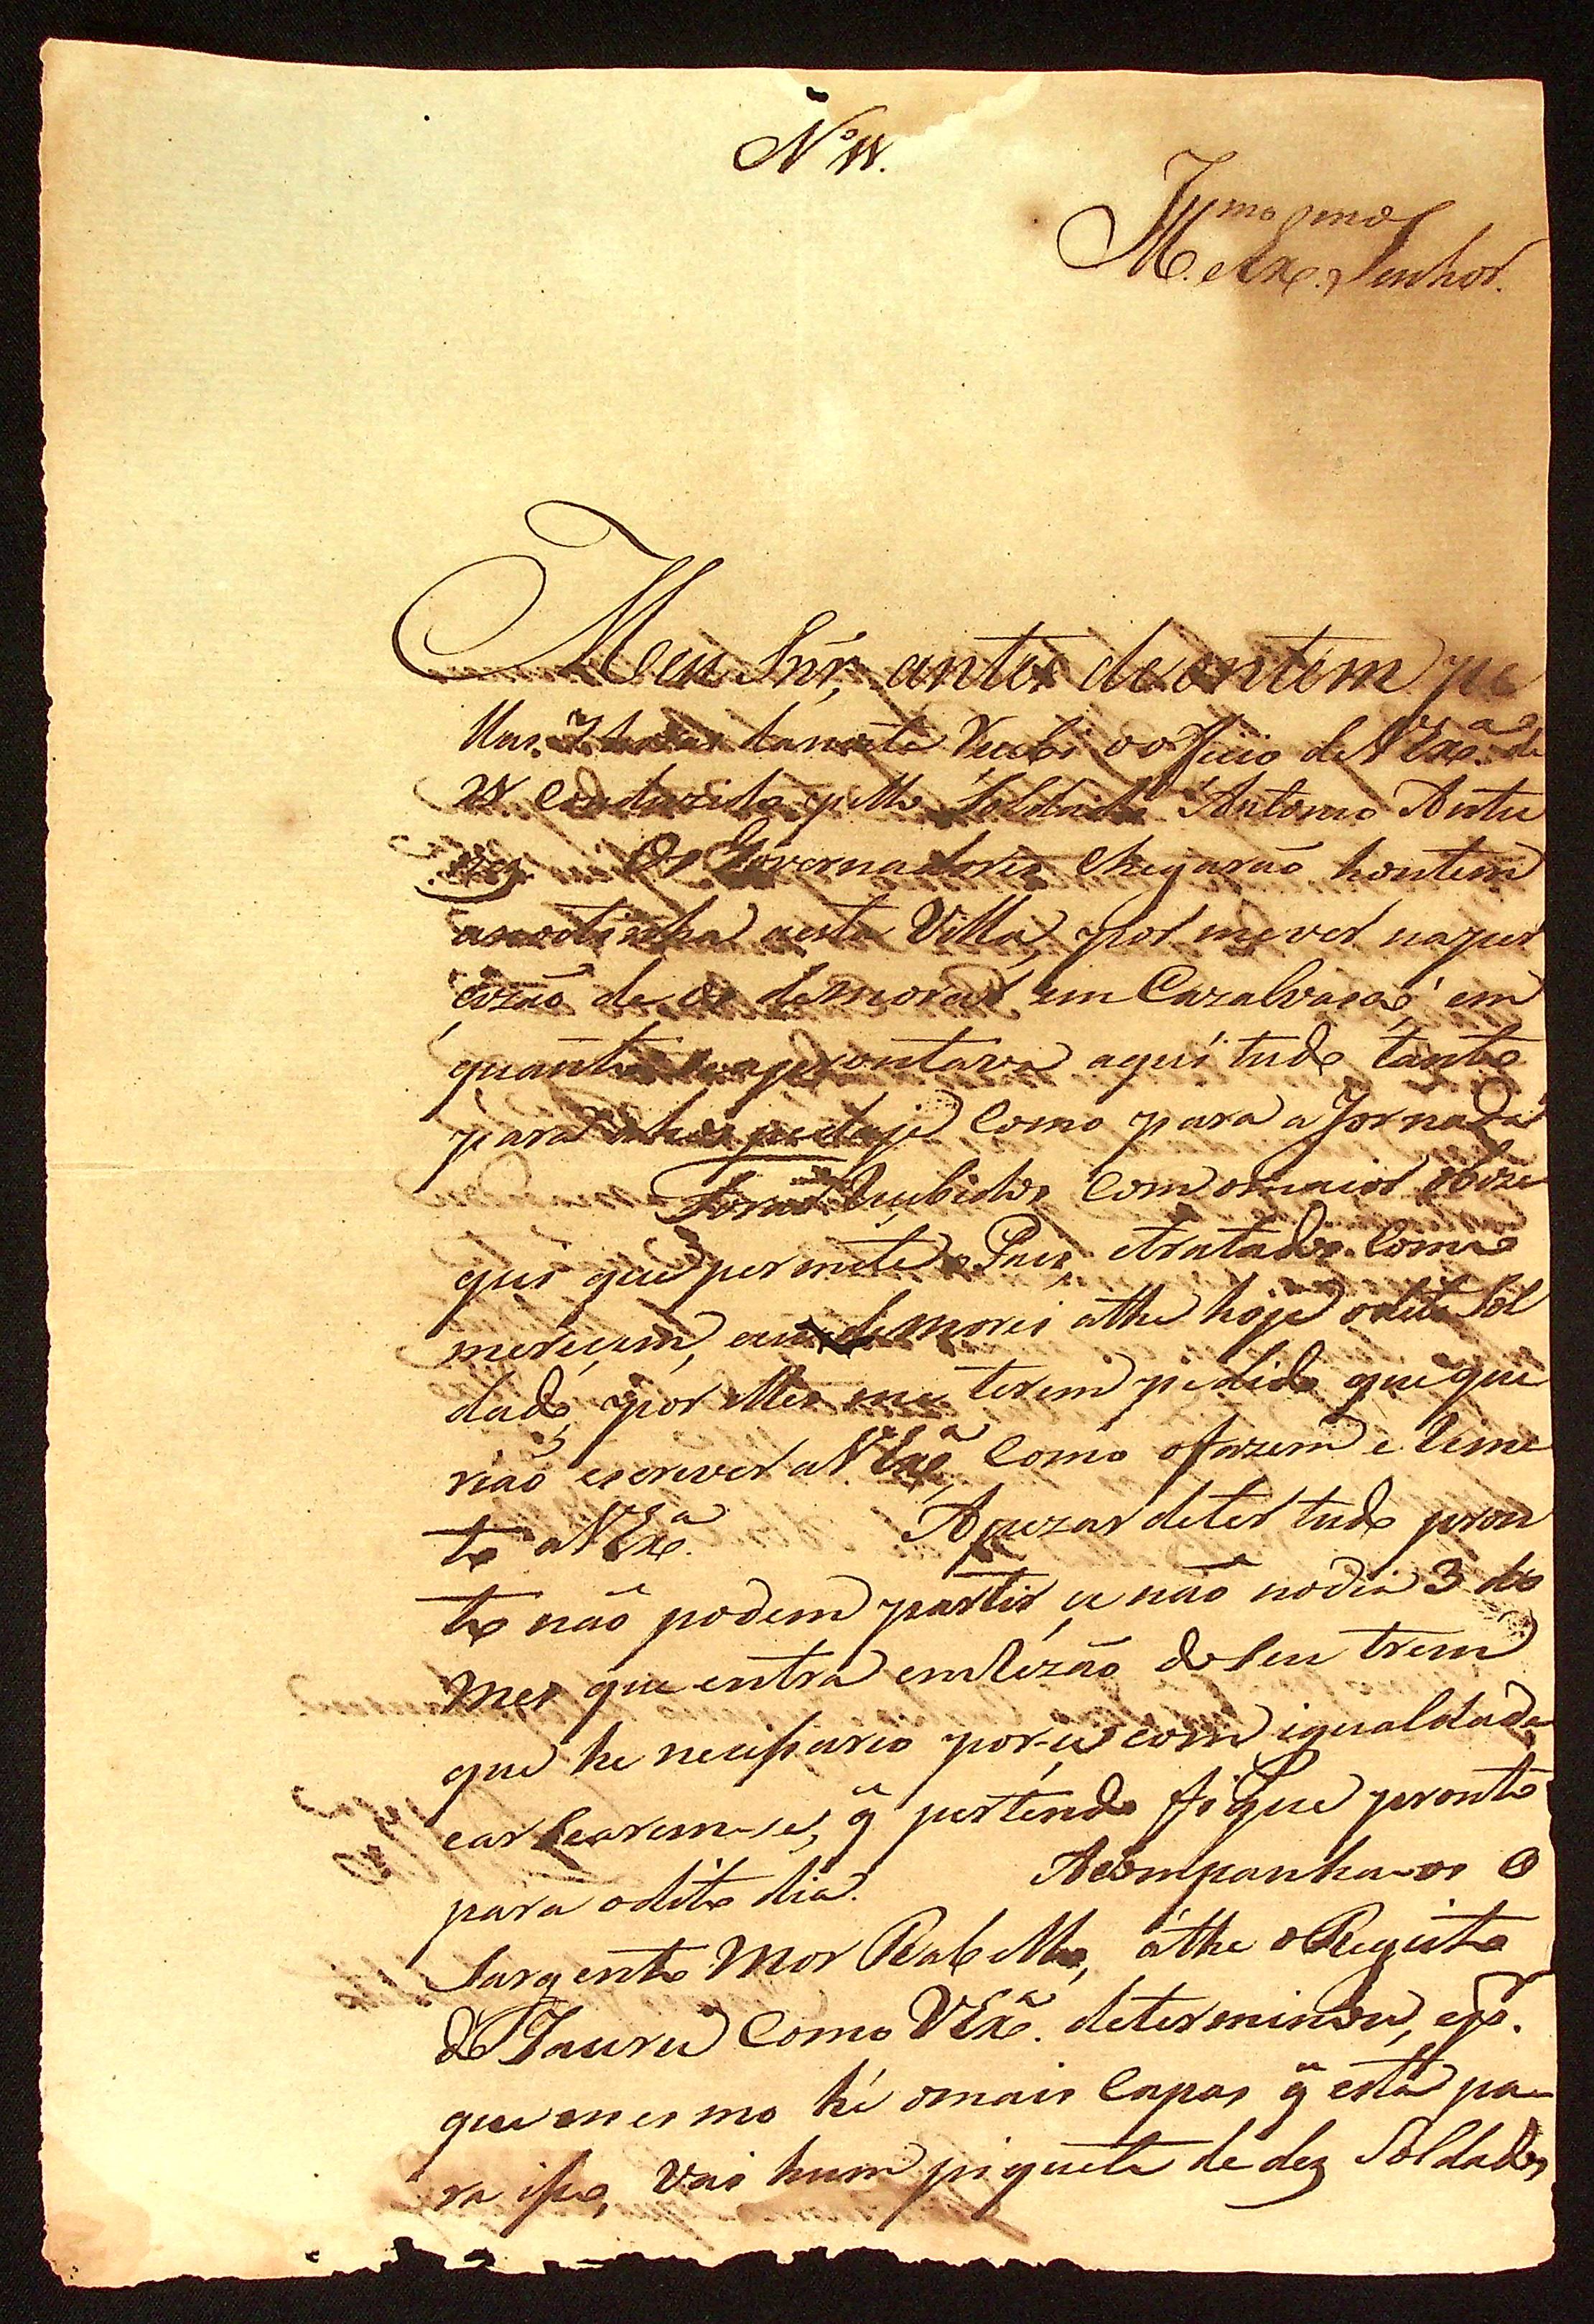 N.º 11.
Ill.mo e Ex.mo Senhor.
Meu Snr, antes de ontem pe
llas 7 horas danoite Recebi o officio de V Exª. de
28 conduzido pello Soldado Antonio Antu
nes. Os Governadores chegarão hontem
anoitinha aesta Villa, por mever napre
cizão de os demorar em Cazalvasco, em
quanto seapprontava aqui tudo tanto
para ahospedaje como para a Jornada
Forão Recebidos com omaior obze
quio que permite o Paiz, etratados como
mereçem, eu demorei athe hoje odito Sol
dado, por elles me terem pedido que que
rião escrever a V Exª, como ofazem e Reme
to a V Exª. Apezar deter tudo pron
to não podem partir se não nodia 3 do
Mes que entra em Rezão do seu trem
que he necessario por-se com igualdade
earlearem-se, q̃ pertendo fique pronto
para odito dia. Acompanha-os O
Sargento Mor Rabello, áthe o Registo
do Jauru como V Exª. determinou, e
que mesmo hé omais capas q̃ está pa-
ra isso, Vai hum piquete de dez Soldados,